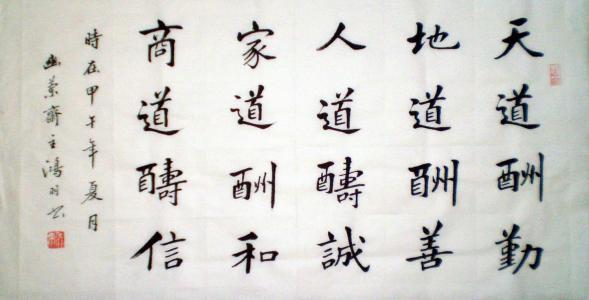 天道酬勤
地道酬善
人道醻誠
家道酬和
商道醻信
時在甲午年夏月
齋主鴻